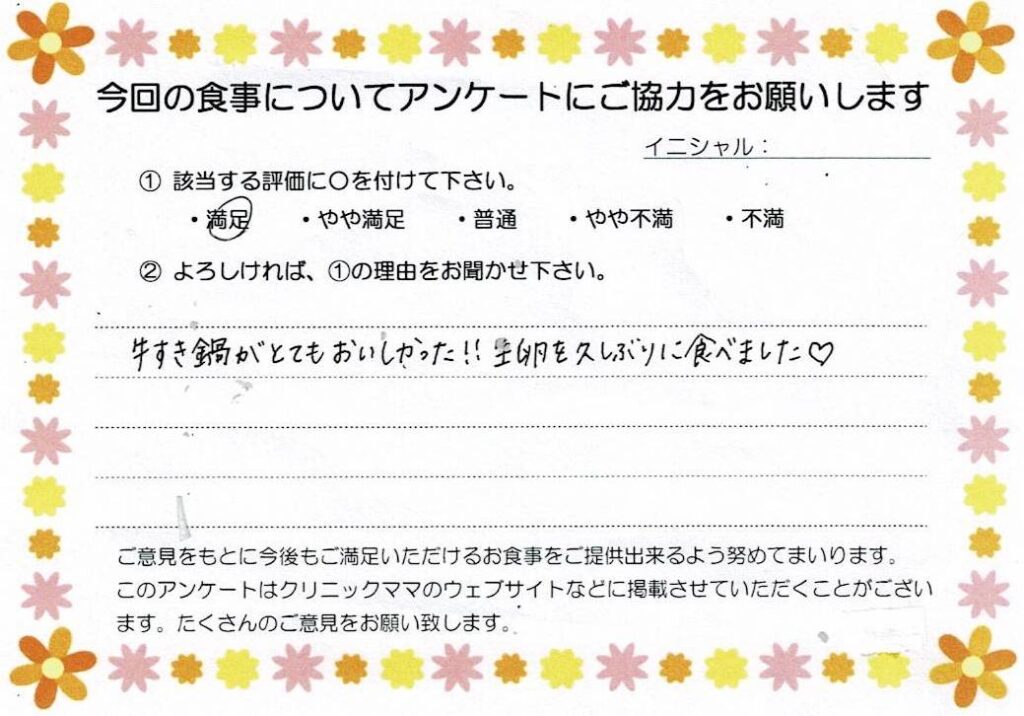 今回の食事についてアンケートにご協力をお願いします
イニシャル：
① 該当する評価に〇を付けて下さい。
・満足 ・やや満足 ・普通 ・やや不満 ・不満
② よろしければ、①の理由をお聞かせ下さい。
牛すき鍋がとてもおいしかった!! 生卵を久しぶりに食べました♡
ご意見をもとに今後もご満足いただけるお食事をご提供出来るよう努めてまいります。
このアンケートはクリニックママのウェブサイトなどに掲載させていただくことがござい
ます。たくさんのご意見をお願い致します。